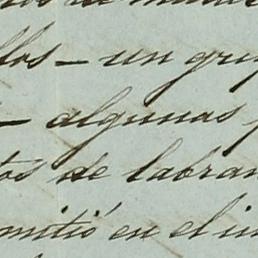 llos — un gru
— algunas
tos de labran
mitió en el in